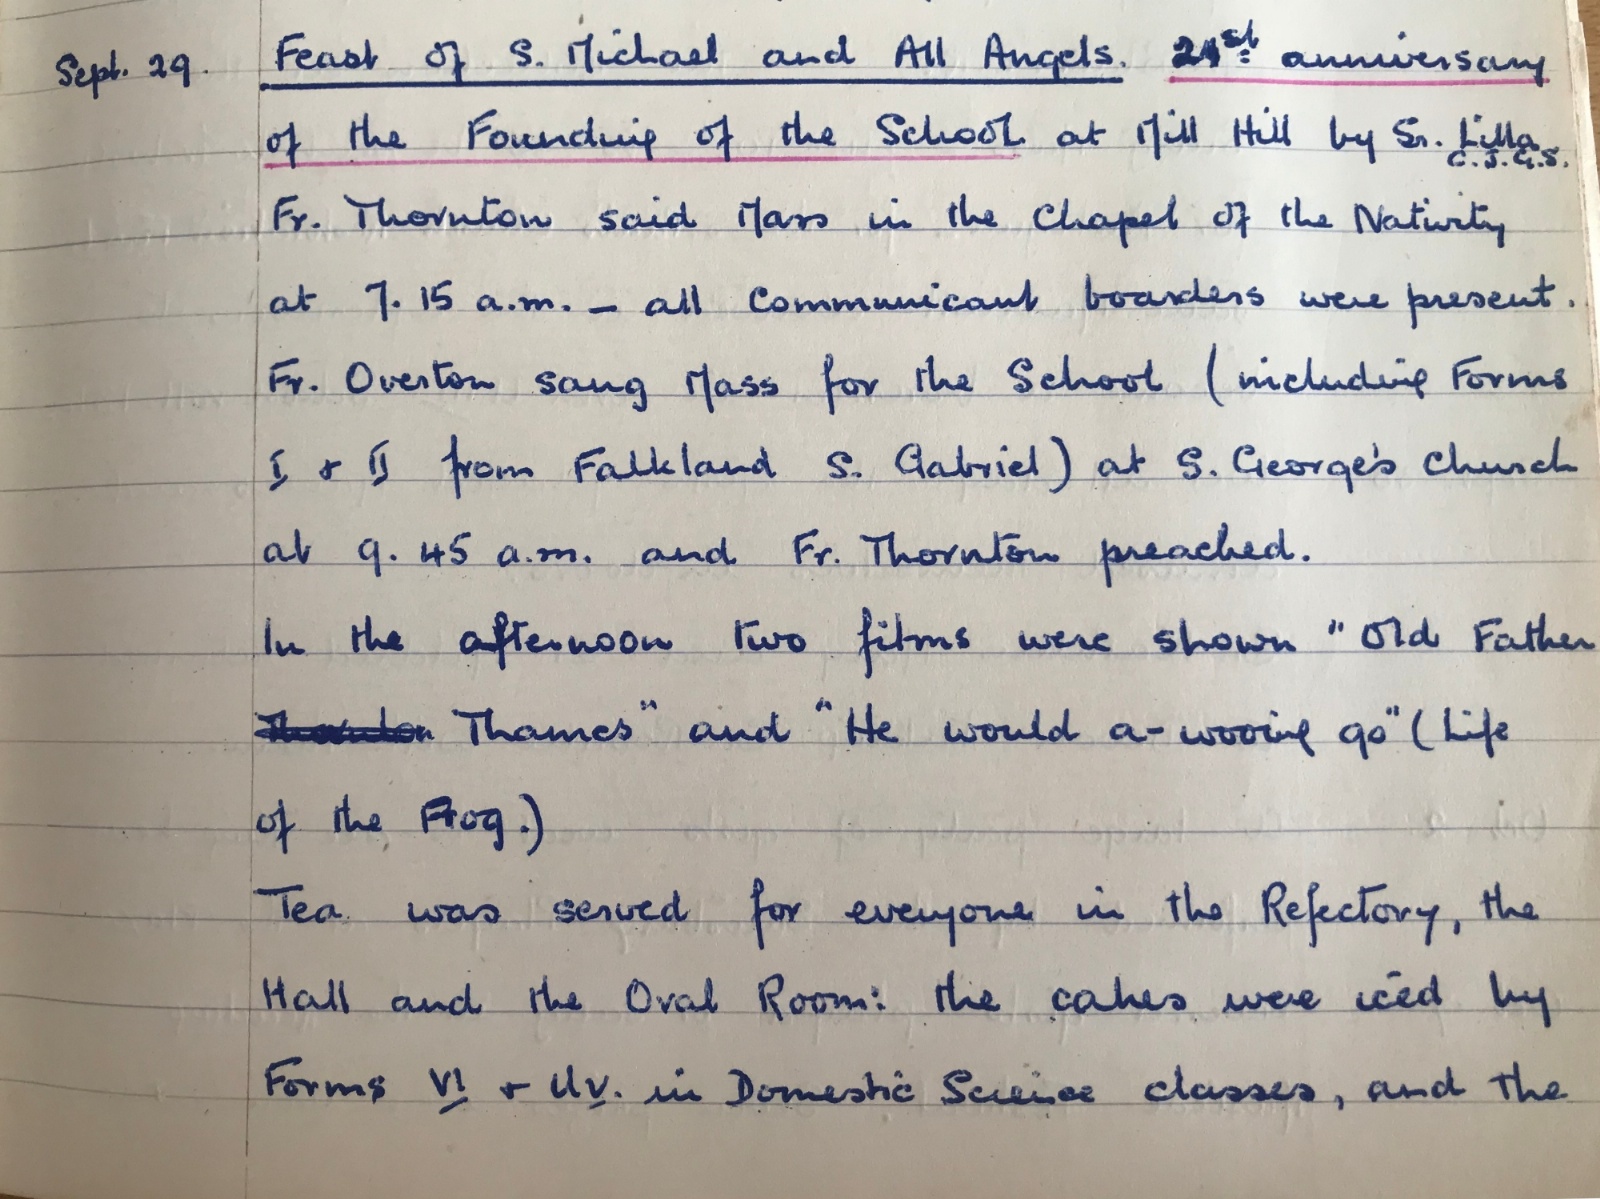 Sept. 29. Feast of S. Michael and All Angels. 21st anniversary
of the Founding of the School at Mill Hill by Sr. Lilla
C.J.G.S.
Fr. Thornton said Mass in the Chapel of the Nativity
at 7.15 a.m. – all Communicant boarders were present.
Fr. Overton sang Mass for the School (including Forms
I & II from Falkland S. Gabriel) at S. George's Church
at 9.45 a.m. and Fr. Thornton preached.
In the afternoon two films were shown "Old Father
Thames" and "He would a-wooing go" (Life
of the Frog.)
Tea was served for everyone in the Refectory, the
Hall and the Oval Room: the cakes were iced by
Forms VI & UV. in Domestic Science classes, and the